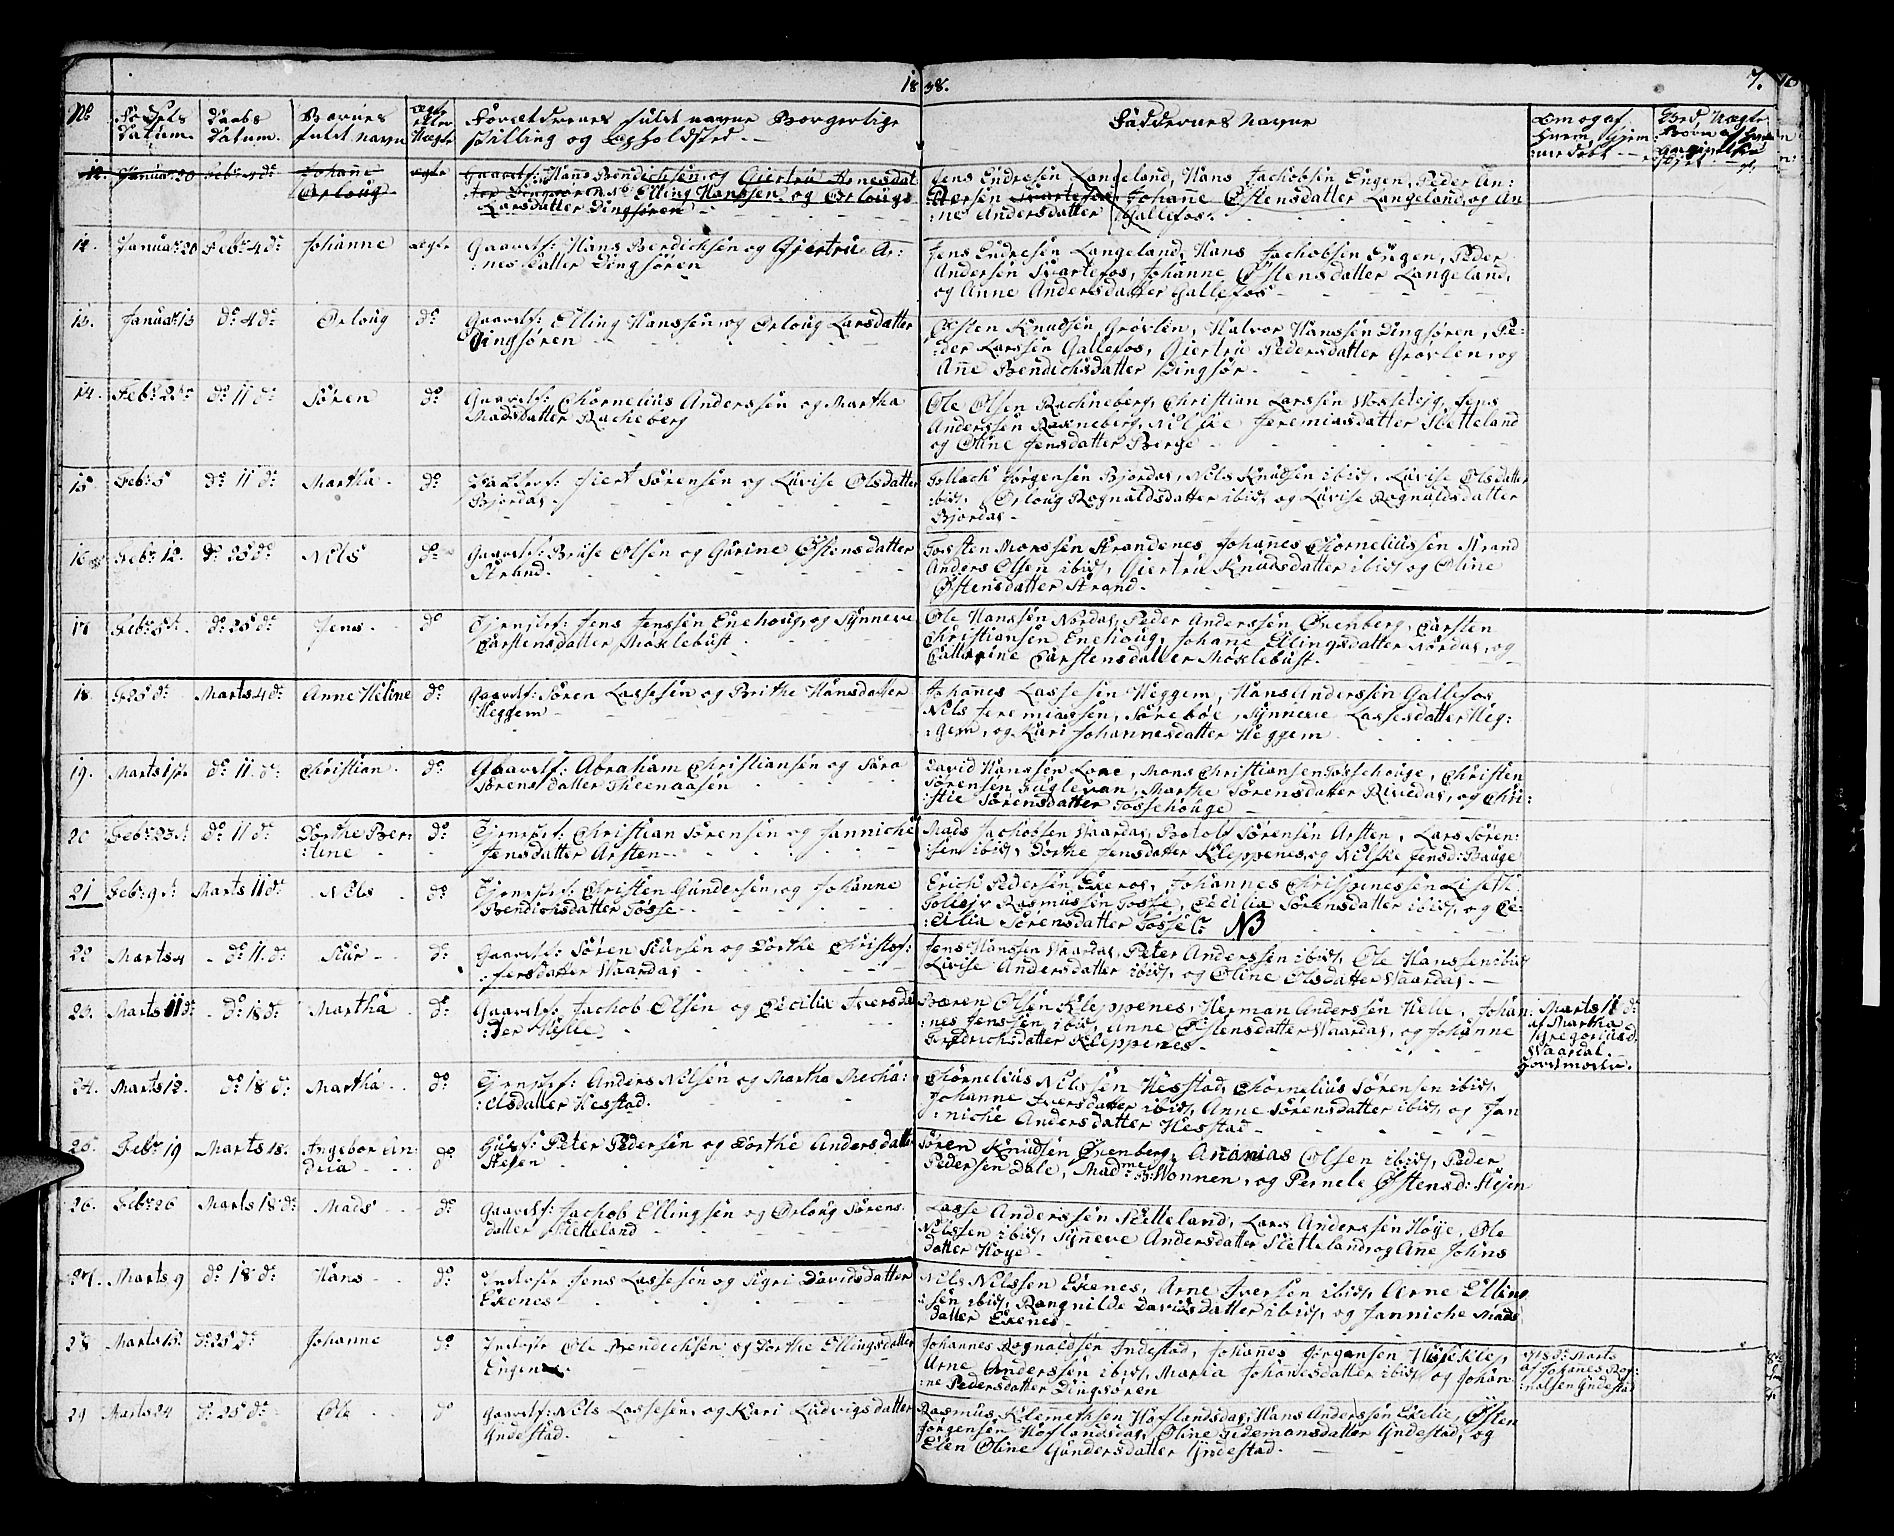 1838. 7.
No Fødsels datum. Daabs datum. Barnets fulde navn ægte eller Uægte Forældrernes fulde navne Borgerlige stilling og Opholdsted. Faddernes navne Om og af hvem hjemmedøbt
12. Januar 20 Feb: 4 d: Johanne Orloug ægte Gaardf: Hans Bendichsen og Giertru Arnesdatter Dingsøren. Elling Hanssen og Orloug Larsdatter Dingsøren
Jens Endresen Langeland, Hans Jachobsen Engen, Peder An:
Dersen Svartefos, Johanne Østensdatter Langeland, og An
:ne Andersdatter Gallefos.
12. Januar 20 Feb: 4 d: Johanne ægte Gaardf: Hans Bendichsen og Gjertru Ar:
:nesdatter Dingsøren
Jens Endresen Langeland, Hans Jachobsen Engen, Peder
Andersen Svartefos, Johanne Østensdatter Langeland,
og Anne Andersdatter Gallefos
13. Januar 13 d: 4 d: Orloug d: Gaardf: Elling Hanssen og Orloug Larsdatter
Dingsøren
Østen Knudsen Grøvlen, Halvor Hanssen Dingsøren, Pe:
:der Larssen Gallefos, Giertru Pedersdatter Grøvlen, og
Ane Bendichsdatter Dingsør.
14. Feb: d: 11 d: Søren d: Gaardf: Chornelius Anderssen og Martha
Madsdatter Racheberg
Ole Olsen Rachneberg, Christian Larssen, Jens
Anderssen Racneberg, Nilske Jeremiasdatter Sletteland
og Oline Jensdatter Berge
15. Feb: 5 d: 11 d: Martha d: Giert Sørensen og Lovise Olsdatter
Bjordas.
Tollach Jørgensen Bjordas, Nels Knudsen ibid, Lovise Olsdatter
ibid, Orloug Rognaldsdatter ibid, og Lovise Rognaldsdatter
Bjordas
16 Feb: 12. d: 25 d: Nels d: Gaardf: Olsen og Gurine Østensdatter
Strand.
Torsten Monssen Strandenes Johannes Chorneliussen Strand
Anders Olsen ibid, Giertru Knudsdatter ibid og Oline
Østensdatter Strand.
17 Feb: d: 25 d: Jens d: Jens Jenssen Enehoug, og Synneve
Carstensdatter Møklebust
Ole Hanssen Nordas, Peder Anderssen Ørenberg, Carsten
Christiansen Enehoug, Johane Ellingsdatter Nordas, og
Cattrine Carstensdatter Møklebust.
18. F 25 d: Marts 4 d: Anne Heline d: Gaardf: Søren Lassesen og Brithe Hansdatter
Heggem
Johannes Lassesen Heggem, Hans Anderssen Gallefos
Nils Jeremiassen, Sørebøe, Synneve Lassesdatter Heg:
:gem, og Kari Johannesdatter Heggem
19. Marts d: 11. d: Christian d: Gaardf: Abraham Christiansen og Sara
Sørensdatter Steenaasen
David Hanssen Lone, Mons Christiansen Tossehouge, Christen
Sørensen Fuglevan, Marthe Sørensdatter Rivedas, og Chri:
:stie Sørensdatter Tossehouge
20 Feb: 23 d: 11 d: Dorthe Ber
:tine d: Christian Sørensen og Janniche
Jensdatter Arsten
Mads Jachobsen Vaardas, Botolf Sørensen Arsten, Lars Søren:
:sen ibid, Dorthe Jensdatter Kleppenes, og Nilske Jensd: Bauge
21 Feb: 9 Marts 11 d: Nels d: Christen Gundersen, og Johanne
Bendichsdatter Tosse
Erich Pedersen, Johannes
Rasmussen Tosse, Cecilia Sørensdatter ibid, og Ce:
:cilia Sørensdatter Tosse NB
22 Marts 4 d: 11. d: Siur d: Gaardf: Søren Siursen og Dorthe Christof:
:fersdatter Vaardas
Jens Hanssen Vaardas, Peter Anderssen ibid, Ole Hanssen ibid,
Livise Andersdatter ibid, og Oline Olsdatter Vaardas.
23. Marts 11 d: d: 18 d: Martha d: Gaardf: Jachob Olsen og Cecilia Iversdat
:der Helle
Olsen Kleppenes, Herman Anderssen Helle, Johan:
:nes Jenssen, ibid, Anne Østensdatter Vaardas, og Johanne
Fredrichsdatter Kleppenes
Marts 11 d:
af Martha
Gregoriusd.
Vaardal.
Jordmoder.
24. Marts 12. d: 18 d: Martha d: Anders Nelsen og Martha Mecha:
:elsdatter Hestad.
Chornelius Nilssen Hesstad, Chornelius Sørensen ibid,
Johanne Iversdatter ibid, Anne Sørensdatter ibid, og Jan
:niche Andersdatter Hesstad
25. Feb: 19 Marts 18. Ingebor An
drea d: Husf: Peter Pedersen og Dorthe Andersdatter
Steien
Søren Knudsen Ørenberg, Ananias Olsen ibid, Peder
Pedersen Dale, Madme B: Wonnen, og Pernele Østensd: Steien
26. Feb: 26 Marts 18 d: Mads d: Gaardf: Jachob Ellingsen og Orloug Sørens
datter Sletteland
Lasse Anderssen Sletteland, Lars Anderssen Høye, Ole
Nilssen ibid, Synneve Andersdatter Sletteland, og Ane Johns
datter Høye
27. Marts 9 d: 18 d: Hans d: Inderst Jens Lassesen og Sigri Davidsdatter
Ekenes
Nils Nilssen Ekenes, Arne Iversen ibid, Arne Elling
:sen ibid, Rangnilde Davidsdatter ibid, og Janniche Mads
datter Ekenes
28 Marts d: 25 d: Johanne d: Inderst Ole Bendichsen og Dorthe Ellingsdatter
Engene.
Johannes Rognaldsen Indestad, Johannes Jørgensen,
Arne Anderssen ibid, Maria Johannesdatter ibid, og Johan
:ne Pedersdatter Dingsøren
18 d: Marts
af Johanes Rog
:nalsen Yndestad
29 Marts 24 d: 25 d: Ole d: Gaardf: Nels Lassesen, og Kari Ludvigsdatter
Yndestad.
Rasmus Klemethsen Hoflandsdas, Hans Anderssen Ekelie, Østen
Jørgensen Hoflandsdas, Oline Tidemansdatter Yndestad, og
Elen Oline Gundersdatter Yndestad.